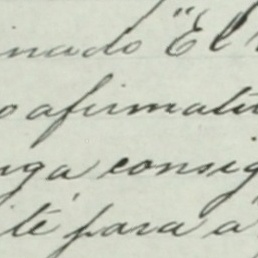 inado "El
o afirmati
nga consig
ité para a